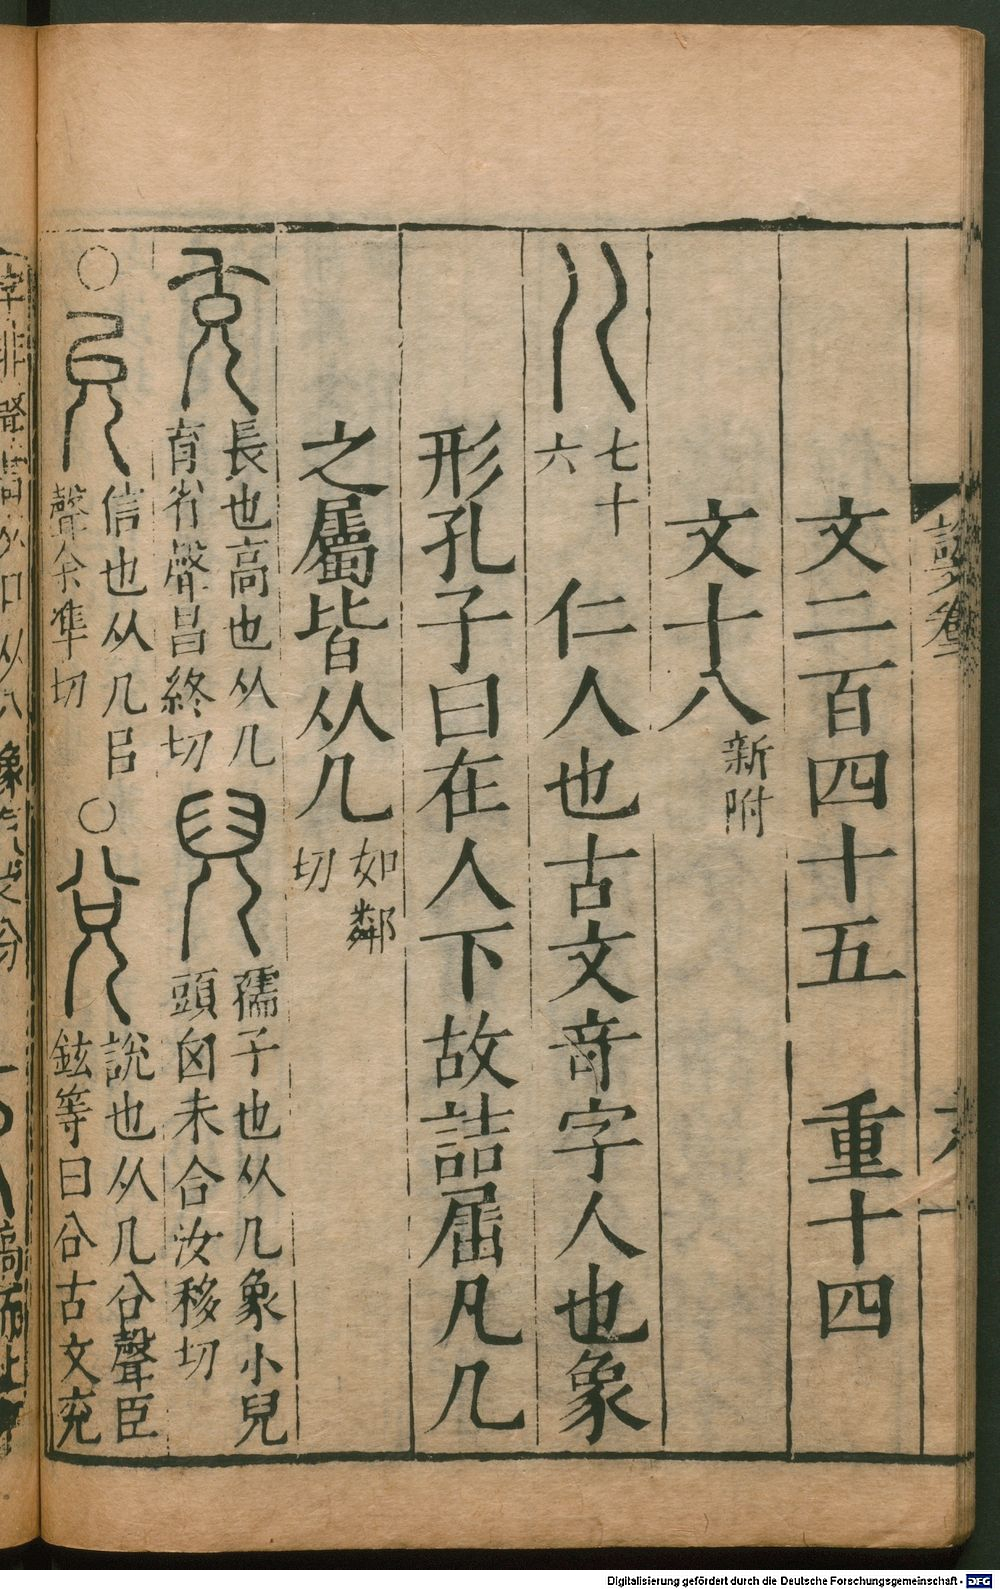 文二百四十五　重十四
文十八 新附
儿 七十六 仁人也古文竒字人也象
形孔子曰在人下故詰屈凡儿
之屬皆从儿 如鄰切
充 長也高也从儿育省聲昌終切 兒 孺子也从儿象小兒頭囟未合汝移切
○允 信也从儿㠯聲余準切 ○兌 說也从儿㕣聲臣鉉等曰㕣古文兖
Digitalisierung gefördert durch die Deutsche Forschungsgemeinschaft - DFG